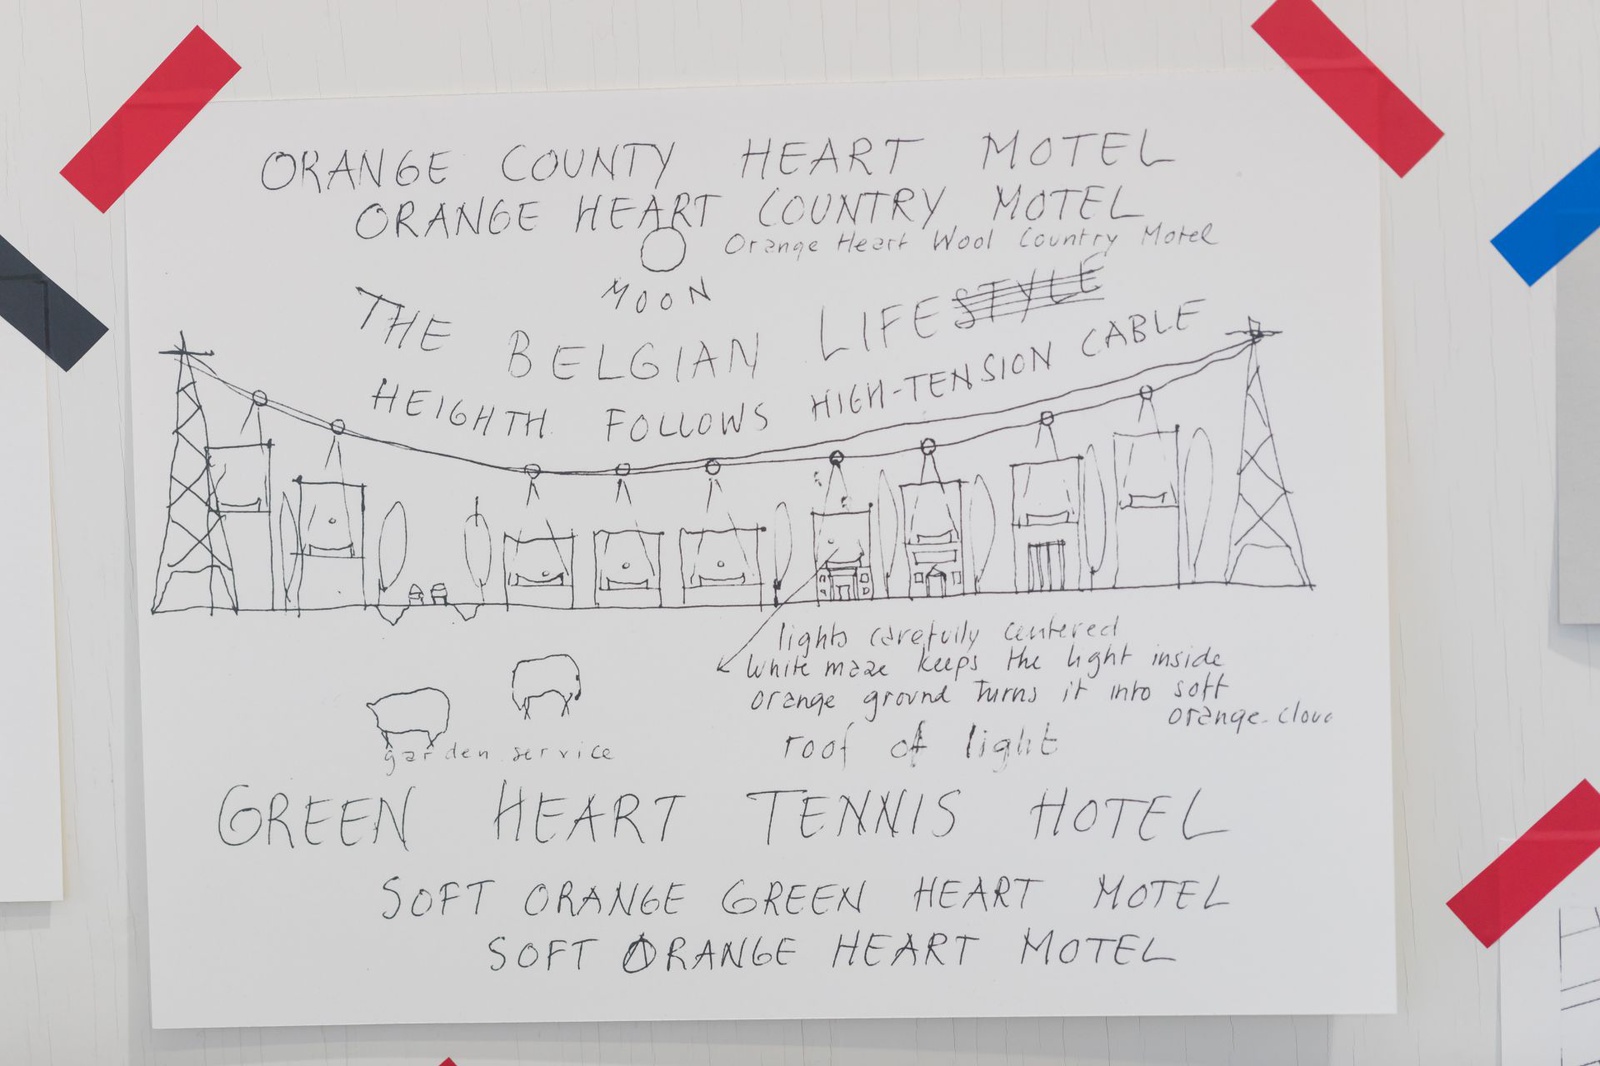 ORANGE COUNTY HEART MOTEL
ORANGE HEART COUNTRY MOTEL
Orange Heart Wool Country Motel
MOON
THE BELGIAN LIFESTYLE
HEIGHTH FOLLOWS HIGH-TENSION CABLE
lights carefully centered
White maze keeps the light inside
orange ground turns it into soft
orange-cloud
roof of light
garden service
GREEN HEART TENNIS HOTEL
SOFT ORANGE GREEN HEART MOTEL
SOFT ORANGE HEART MOTEL